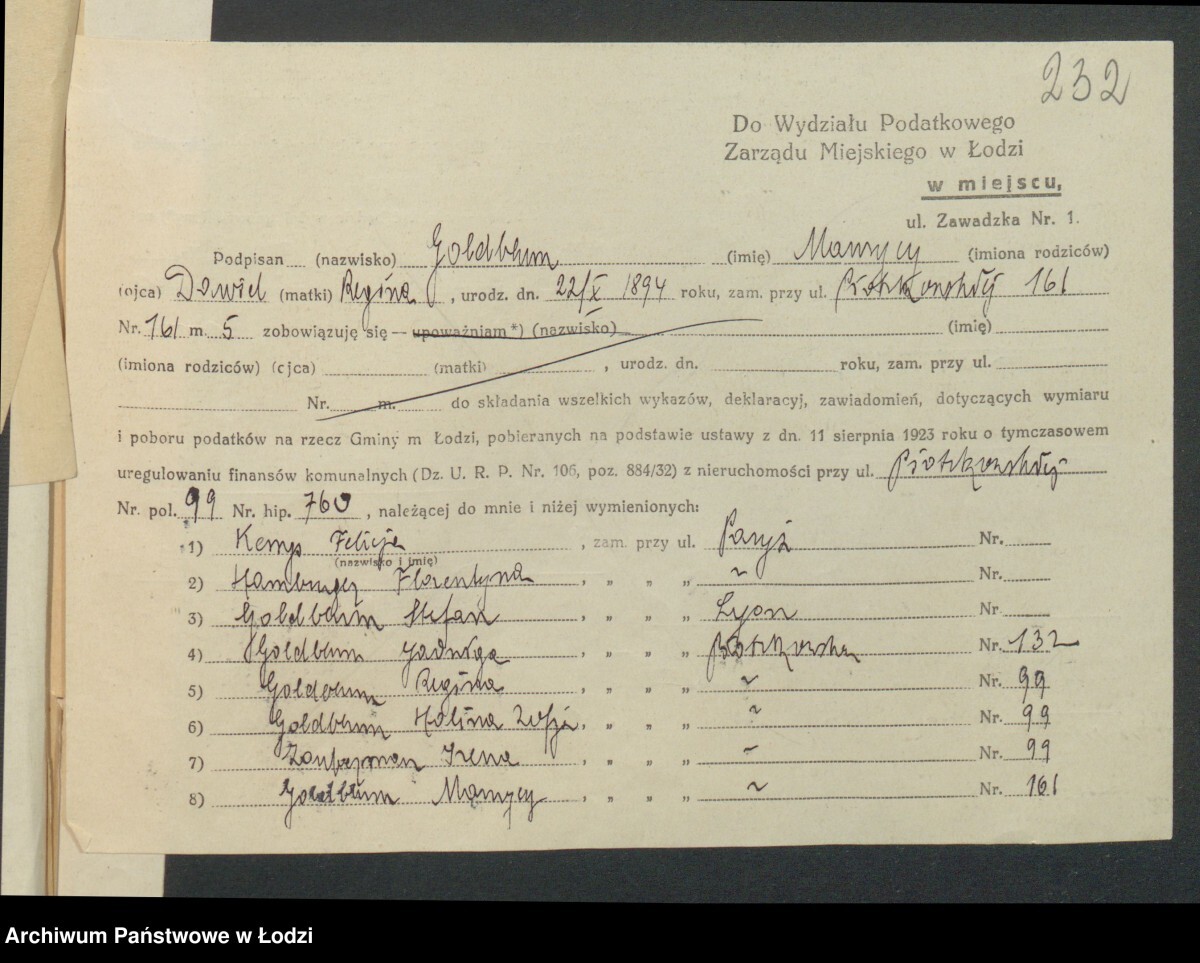 232
Do Wydziału Podatkowego
Zarządu Miejskiego w Łodzi
w miejscu,
ul. Zawadzka Nr. 1.
Podpisan (nazwisko) Goldblum (imię) Maurycy (imiona rodziców)
(ojca) Dawid (matki) Regina, urodz. dn. 22/X 1894 roku, zam. przy ul. Piotrkowskiej 161
Nr. 161 m. 5 zobowiązuję się — upoważniam*) (nazwisko) (imię)
(imiona rodziców) (cjca) (matki) , urodz. dn. roku, zam. przy ul.
Nr. m. do składania wszelkich wykazów, deklaracyj, zawiadomień, dotyczących wymiaru
i poboru podatków na rzecz Gminy m Łodzi, pobieranych na podstawie ustawy z dn. 11 sierpnia 1923 roku o tymczasowem
uregulowaniu finansów komunalnych (Dz. U. R. P. Nr. 106, poz. 884/32) z nieruchomości przy ul. Piotrkowskiej
Nr. pol. 99 Nr. hip. 760, należącej do mnie i niżej wymienionych:
1) Felicja , zam. przy ul. Paryż Nr.
(nazwisko i imię)
2) Hamburger Florentyna , „ „ „ ~ Nr.
3) Goldblum Stefan , „ „ „ Lyon Nr
4) Goldblum Jadwiga , „ „ „ Piotrkowska Nr. 132
5) Goldblum Regina , „ „ „ ~ Nr. 99
6) Goldblum Halina Zofja , „ „ „ ~ Nr. 99
7) Irena , „ „ „ ~ Nr. 99
8) Goldblum Maurycy , „ „ „ ~ Nr. 161
Archiwum Państwowe w Łodzi